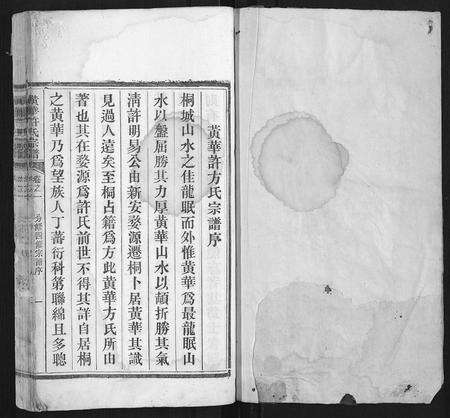 黃華許方氏宗譜序
桐城山水之佳龍眠而外惟黃華爲最龍眠山
水以盤屈勝其力厚黃華山水以頓折勝其氣
淸許明易公由新安婺源遷桐卜居黃華其識
見過人遠矣至桐占籍爲方此黃華方氏所由
著也其在婺源爲許氏前世不得其詳自居桐
之黃華乃爲望族人丁蕃衍科第聯綿且多聰
黃華許氏宗譜
卷之一
宗譜序
一